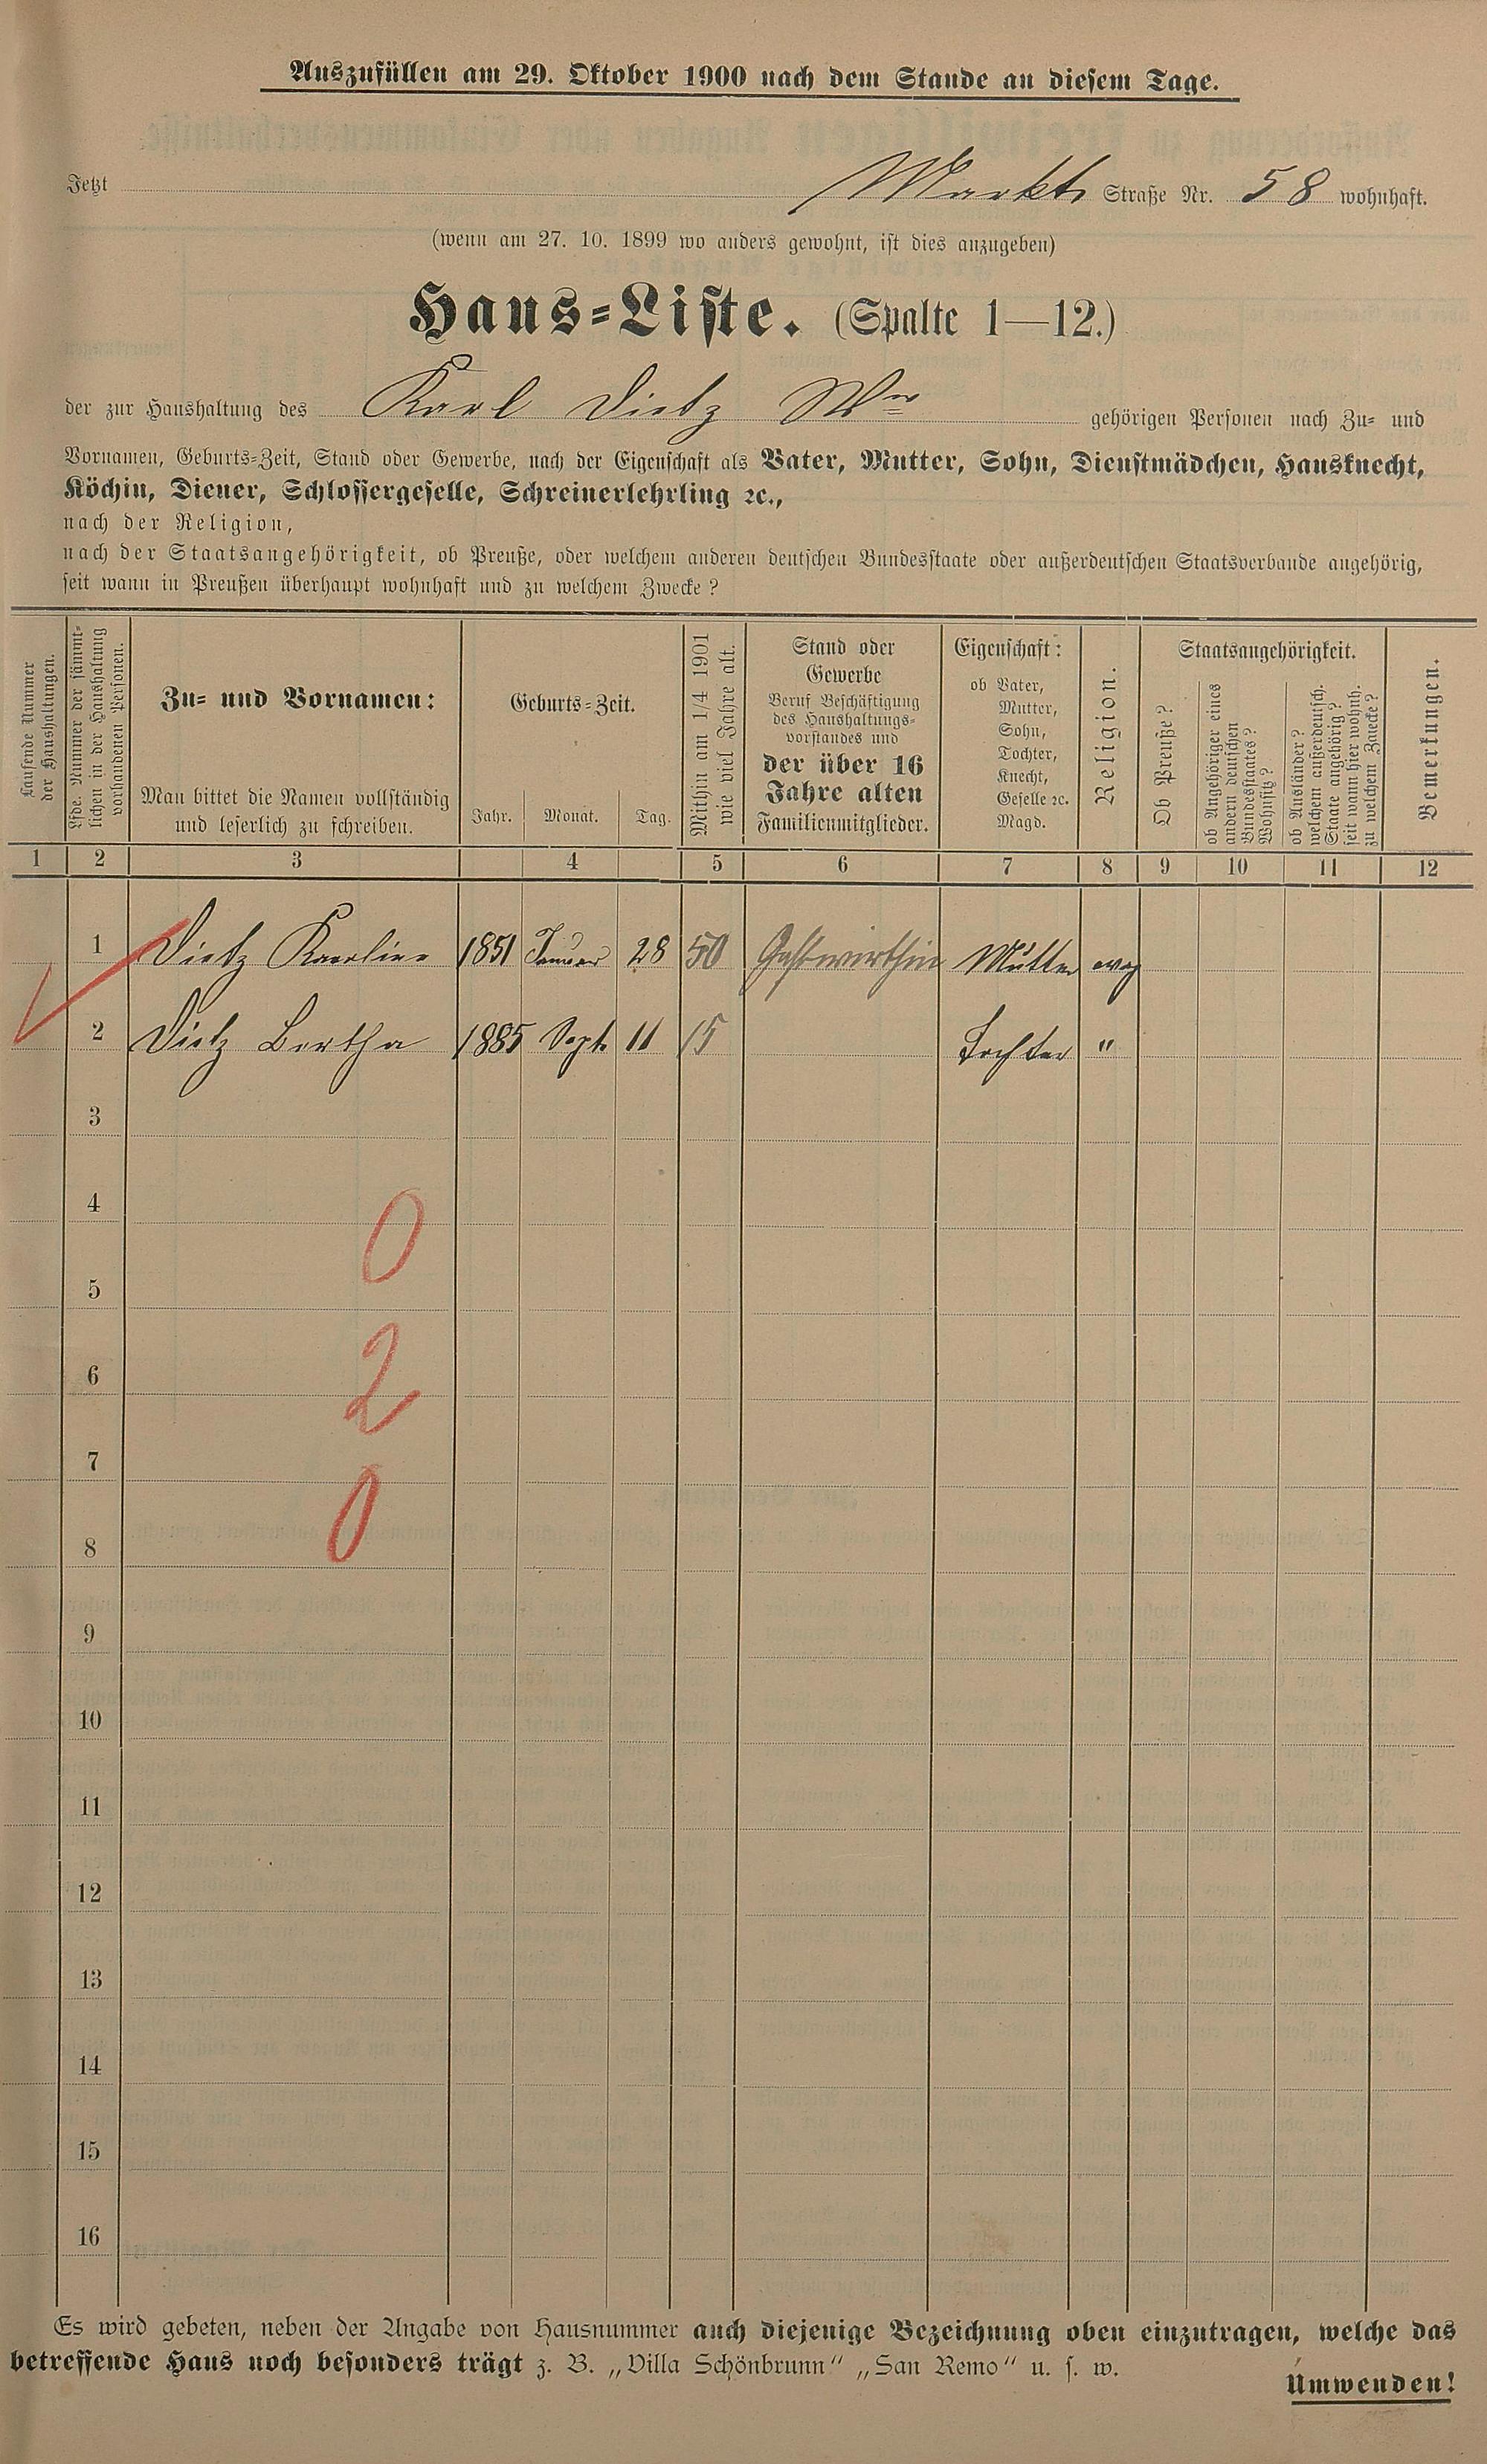 Auszufüllen am 29. Oktober 1900 nach dem Stande an diesem Tage.
Jetzt Markt Straße Nr. 58 wohnhaft.
(wenn am 27. 10. 1899 wo anders gewohnt, ist dies anzugeben)
Haus-Liste. (Spalte 1—12.)
der zur Haushaltung des Karl Dietz Wwe gehörigen Personen nach Zu- und
Vornamen, Geburts-Zeit, Stand oder Gewerbe, nach der Eigenschaft als Vater, Mutter, Sohn, Dienstmädchen, Hausknecht,
Köchin, Diener, Schlossergeselle, Schreinerlehrling ꝛc.,
nach der Religion,
nach der Staatsangehörigkeit, ob Preuße, oder welchem anderen deutschen Bundesstaate oder außerdeutschen Staatsverbande angehörig,
seit wann in Preußen überhaupt wohnhaft und zu welchem Zwecke?
Laufende Nummer
der Haushaltungen.
Lfde. Nummer der sämmt-
lichen in der Haushaltung
vorhandenen Personen.
Zu- und Vornamen:
Man bittet die Namen vollständig
und leserlich zu schreiben.
Geburts-Zeit.
Jahr. Monat. Tag.
Mithin am 1/4 1901
wie viel Jahre alt.
Stand oder
Gewerbe
Beruf Beschäftigung
des Haushaltungs-
vorstandes und
der über 16
Jahre alten
Familienmitglieder.
Eigenschaft:
ob Vater,
Mutter,
Sohn,
Tochter,
Knecht,
Geselle ꝛc.
Magd.
Religion.
Staatsangehörigkeit.
Ob Preuße?
ob Angehöriger eines
andern deutschen
Bundesstaates?
Wohnsitz?
ob Ausländer?
welchem außerdeutsch.
Staate angehörig?
seit wann hier wohnh.
zu welchem Zwecke?
Bemerkungen.
1 2 3 4 5 6 7 8 9 10 11 12
1 Dietz Karoline 1851 Januar 28 50 Gastwirthin Mutter evg
2 Dietz Bertha 1885 Sept. 11 15 Tochter "
3
4
0
5
6
2
7
0
8
9
10
11
12
13
14
15
16
Es wird gebeten, neben der Angabe von Hausnummer auch diejenige Bezeichnung oben einzutragen, welche das
betreffende Haus noch besonders trägt z. B. „Villa Schönbrunn“ „San Remo“ u. s. w.
Umwenden!